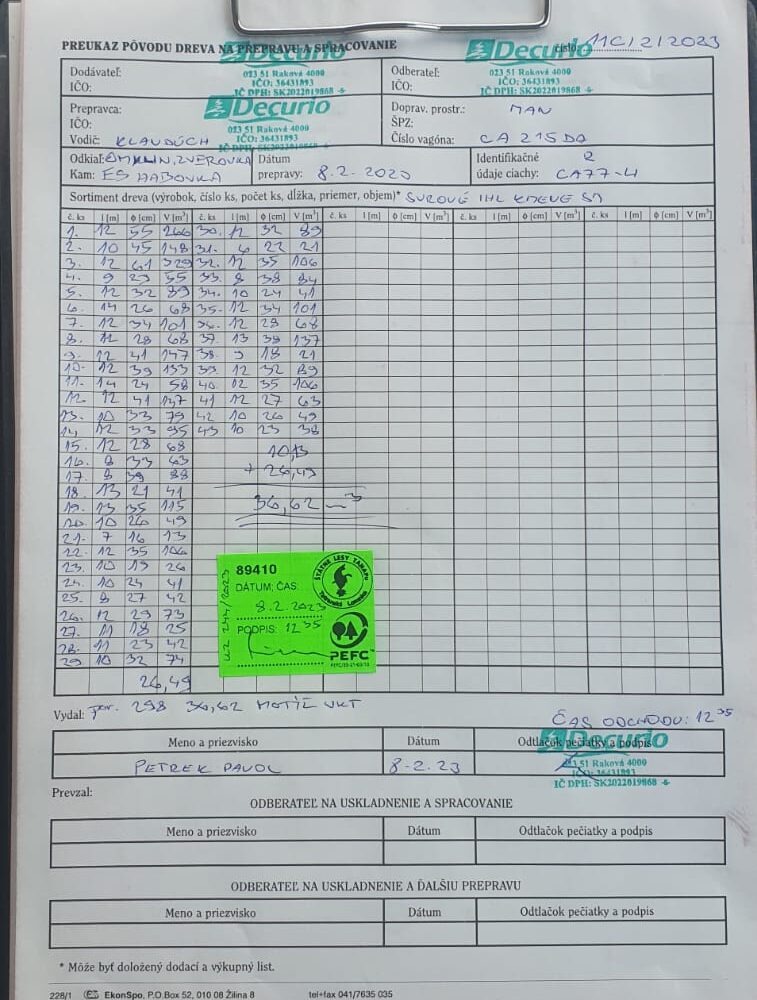 PREUKAZ PÔVODU DREVA NA PREPRAVU A SPRACOVANIE
číslo: 11C/2/2023
Decurio
023 51 Raková 4000
IČO: 36431893
IČ DPH: SK2022019868 -6-
Decurio
023 51 Raková 4000
IČO: 36431893
IČ DPH: SK2022019868 -6-
Dodávateľ:
IČO:
Odberateľ:
IČO:
Decurio
023 51 Raková 4000
IČO: 36431893
IČ DPH: SK2022019868 -6-
Prepravca:
IČO:
Vodič: KLAUDÚCH
Doprav. prostr.: MAN
ŠPZ:
Číslo vagóna: CA 215 DD
Odkiaľ: ZVEROVKA
Kam: ES HABOVKA
Dátum
prepravy: 8.2.2023
Identifikačné 2
údaje ciachy: CA77-4
Sortiment dreva (výrobok, číslo ks, počet ks, dĺžka, priemer, objem)* SUROVÉ IHL KMENE SM
č. ks l [m] ϕ [cm] V [m³] č. ks l [m] ϕ [cm] V [m³] č. ks l [m] ϕ [cm] V [m³] č. ks l [m] ϕ [cm] V [m³] č. ks l [m] ϕ [cm] V [m³]
1. 12 55 266 30. 12 32 89
2. 10 45 148 31. 6 22 21
3. 12 61 329 32. 12 35 106
4. 9 29 55 33. 8 38 84
5. 12 32 89 34. 10 24 41
6. 14 26 68 35. 12 34 101
7. 12 34 101 36. 12 28 68
8. 12 28 68 37. 13 39 137
9. 12 41 147 38. 9 18 21
10. 12 39 133 39. 12 32 89
11. 14 24 58 40. 12 35 106
12. 12 41 147 41. 12 27 63
13. 10 33 79 42 10 26 49
14. 12 33 95 43 10 23 38
15. 12 28 68
16. 8 33 63
17. 8 39 88
18. 13 21 41
19. 13 35 115
20. 10 26 49
21. 7 16 13
22. 12 35 106
23. 10 19 26
24. 10 24 41
25. 8 27 42
26. 12 29 73
27. 11 18 25
28. 11 23 42
29 10 32 74
26,49
10,13
+ 26,49
36,62 m³
89410
DÁTUM, ČAS:
8.2.2023
PODPIS: 12 35
ŠTÁTNE LESY TANAPU
Tatranská Lomnica
PEFC
Vydal: por. 298 36,62 MOTÍŽ VKT
ČAS ODCHODU: 12 35
Meno a priezvisko Dátum Odtlačok pečiatky a podpis
PETREK PAVOL 8.2.23
Decurio
023 51 Raková 4000
IČO: 36431893
IČ DPH: SK2022019868 -6-
Prevzal:
ODBERATEĽ NA USKLADNENIE A SPRACOVANIE
Meno a priezvisko Dátum Odtlačok pečiatky a podpis
ODBERATEĽ NA USKLADNENIE A ĎALŠIU PREPRAVU
Meno a priezvisko Dátum Odtlačok pečiatky a podpis
* Môže byť doložený dodací a výkupný list.
228/1 EkonSpo, P.O.Box 52, 010 08 Žilina 8 tel+fax 041/7635 035